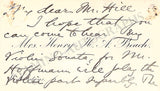 My dear Mr. Hill,
I hope that you
can come to hear My
Mrs. Henry H. A. Beach,
Violin Sonata, for Mr.
Hoffmann will play the
violin part superbly. The